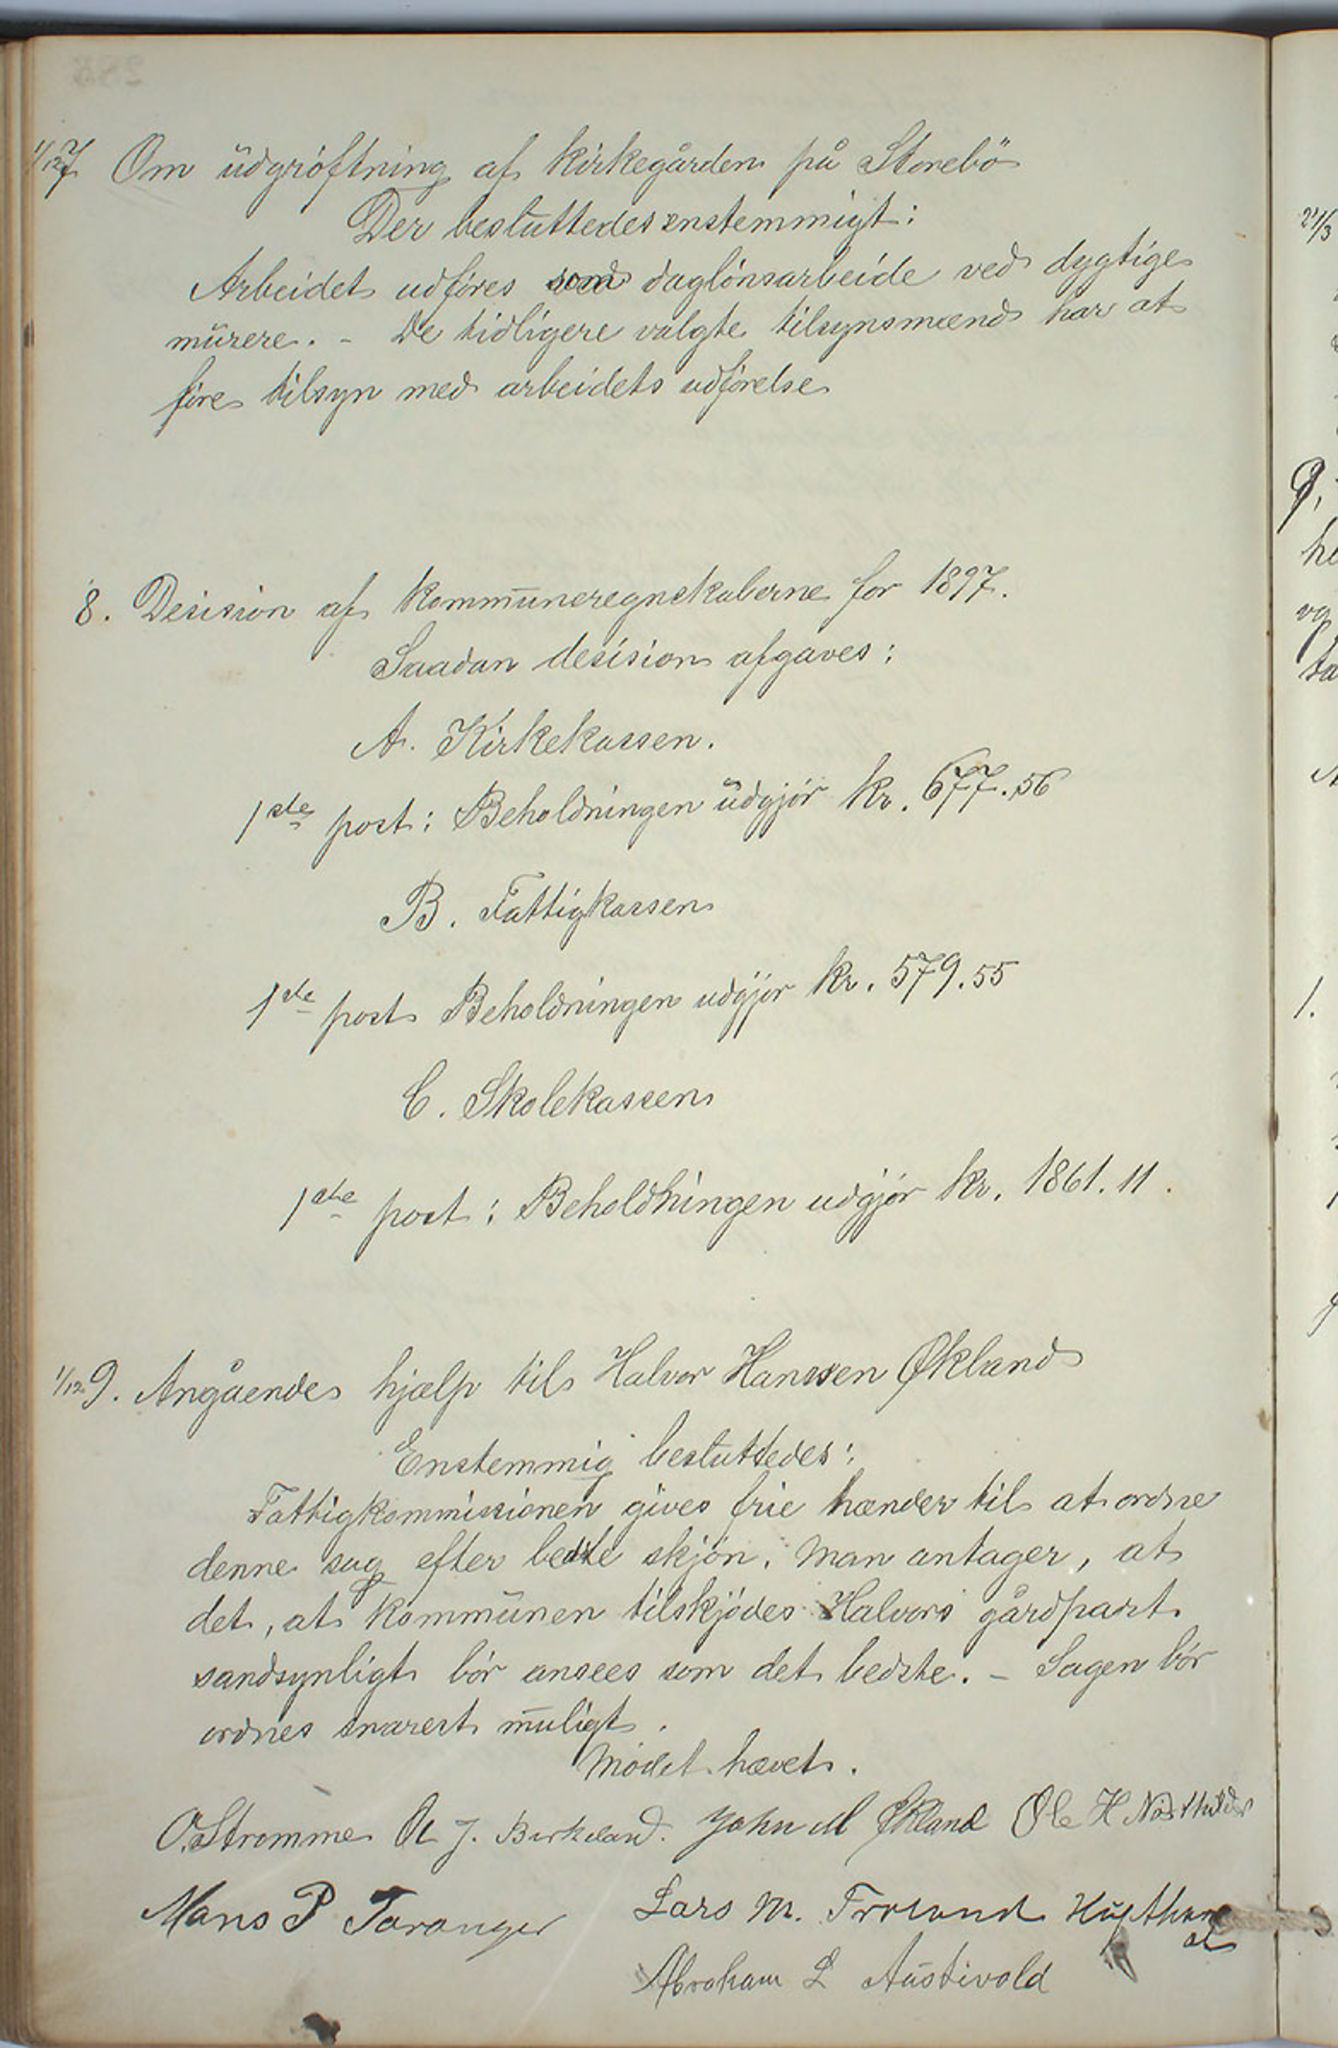 1/12 7. Om üdgrøftning af kirkegården på Storebø
Der besluttedes enstemmigt:
Arbeidet udføres som daglønsarbeide ved dygtige
mürere. - De tidligere valgte tilsynsmænd har at
føre tilsyn med arbeidets udførelse
8. Desision af kommüneregnskaberne for 1897.
Saadan desision afgaves:
A. Kirkekassen.
1ste post: Beholdningen üdgjør kr. 677.56
B. Fattigkassen
1ste post Beholdningen udgjør kr. 579.55
C. Skolekassen
1ste post: Beholdningen udgjør kr. 1861.11.
1/12 9. Angående hjælp til Halvor Hanssen Økland
Enstemmig besluttedes:
Fattigkommissionen gives frie hænder til at ordne
denne sag efter bedste skjøn. Man antager, at
det, at kommünen tilskjødes Halvors gårdpart
sandsynligt bør ansees som det bedste. - Sagen bør
ordnes snarest muligt.
Mødet hævet.
O. Strømme J. Birkeland. John M Økland Ole H
Mons P Taranger Lars M. Frøland Hufthamer
Abraham L Aüstivold